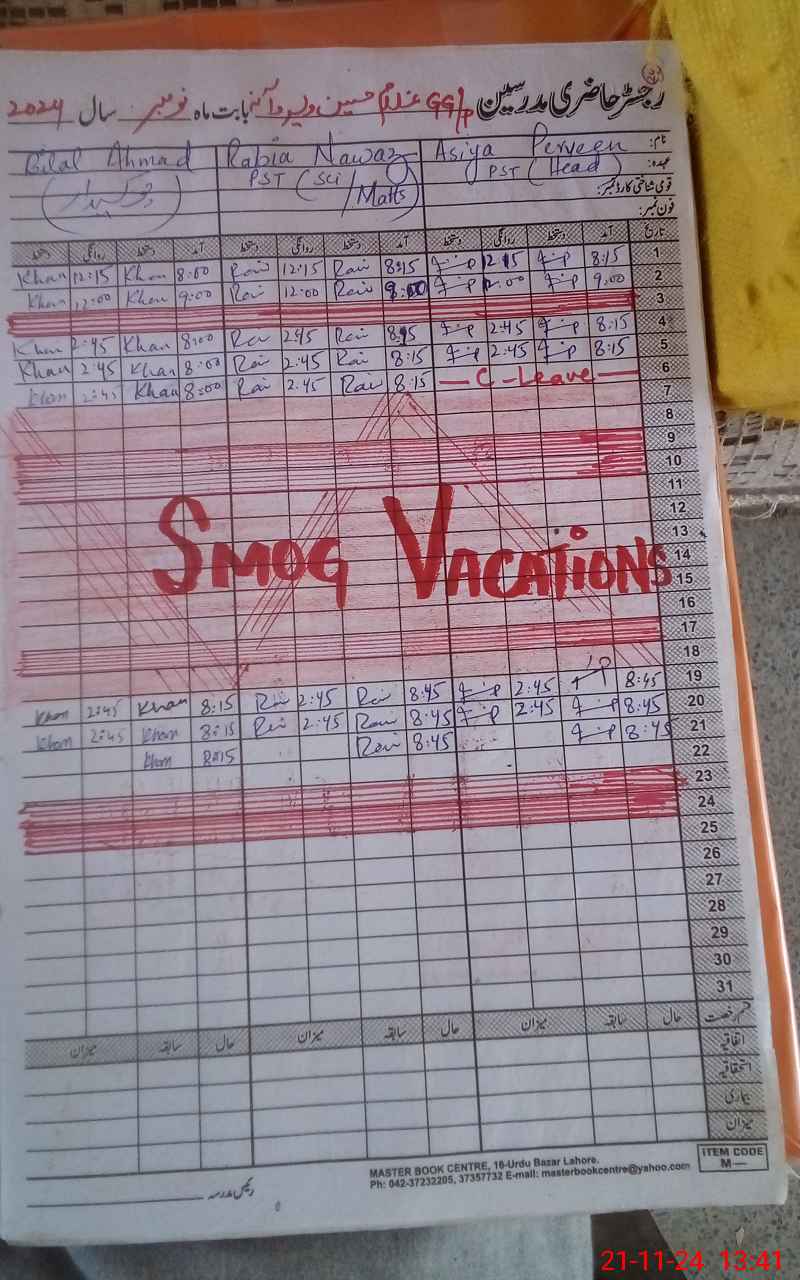 رجسٹر حاضری مدرسین GGP/S غلام حسین بابت ماہ نومبر سال 2024
نام: Asiya Perveen Rabia Nawaz Bilal Ahmad
عہدہ: PST (Head) PST (Sci/Maths) چوکیدار
قومی شناختی کارڈ نمبر:
فون نمبر:
تاریخ آمد دستخط روانگی دستخط آمد دستخط روانگی دستخط آمد دستخط روانگی دستخط
Khan 12:15 Khan 8:00 Rai 12:15 Rai 8:15 12:15 8:15 1
Khan 12:00 Khan 9:00 Rai 12:00 Rai 9:00 12:00 9:00 2
3
Khan 2:45 Khan 8:00 Rai 2:45 Rai 8:15 2:45 8:15 4
Khan 2:45 Khan 8:00 Rai 2:45 Rai 8:15 2:45 8:15 5
Khan 2:45 Khan 8:00 Rai 2:45 Rai 8:15 — C-Leave — 6
7
8
9
10
11
12
13
SMOG VACATIONS
14
15
16
17
18
Khan 2:45 Khan 8:15 Rai 2:45 Rai 8:45 2:45 8:45 19
Khan 2:45 Khan 8:15 Rai 2:45 Rai 8:45 2:45 8:45 20
Khan 8:15 Rai 8:45 8:45 21
22
23
24
25
26
27
28
29
30
31
قسم رخصت حال سابقہ میزان حال سابقہ میزان حال سابقہ میزان
اتفاقیہ
استحقاقیہ
بیماری
میزان
ITEM CODE
M—
MASTER BOOK CENTRE, 16-Urdu Bazar Lahore.
Ph: 042-37232205, 37357732 E-mail: masterbookcentre@yahoo.com
رئیس مدرسہ
21-11-24 13:41